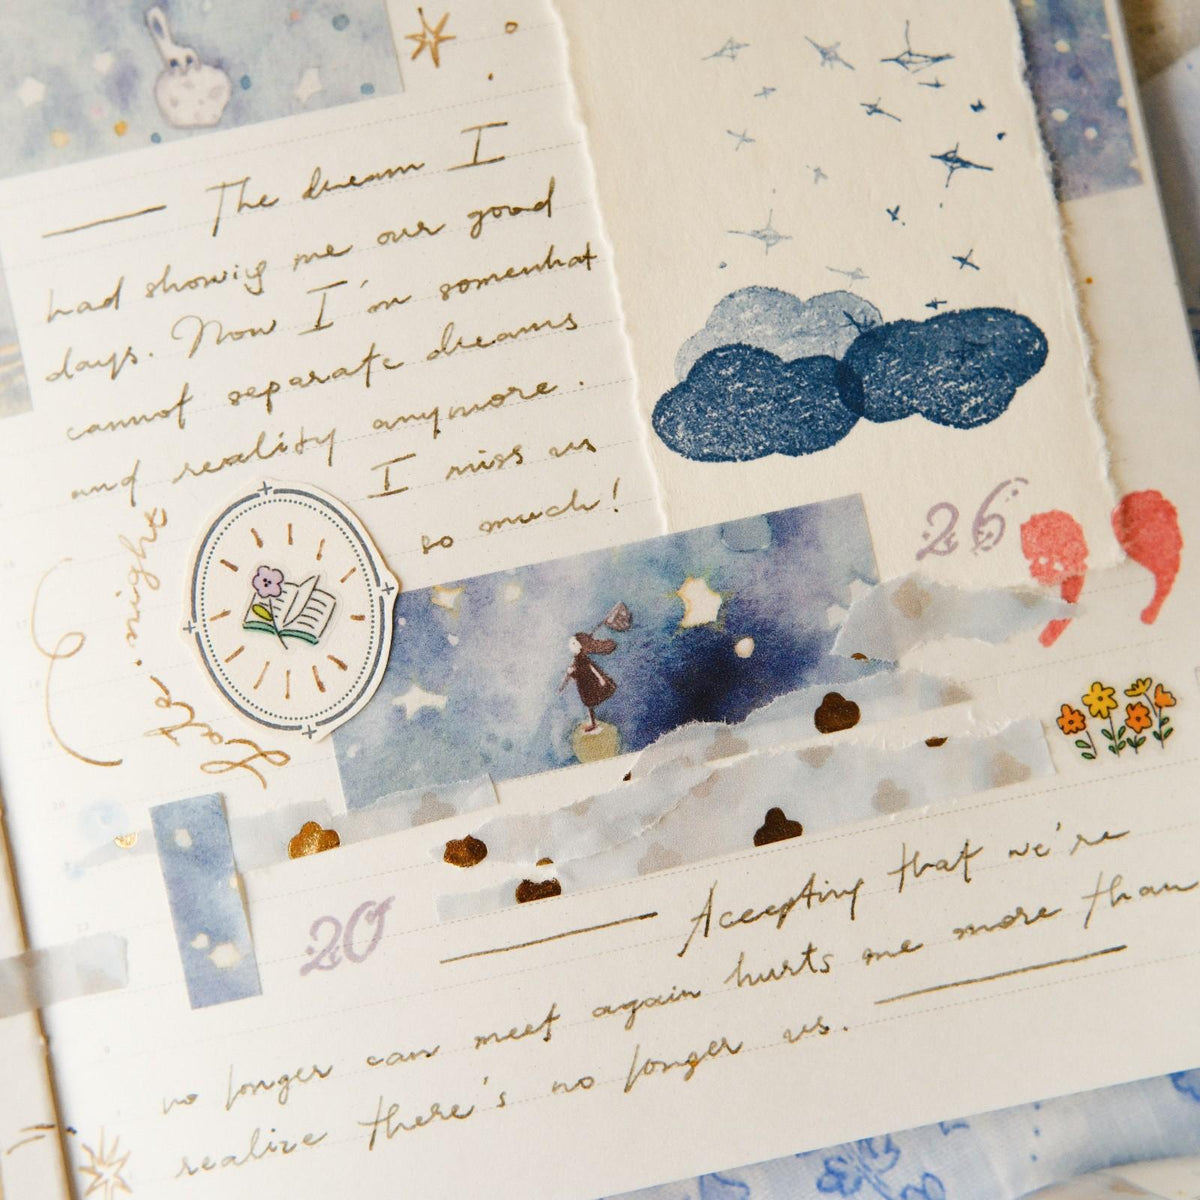 The dream I
had showig me our good
days. Now I'm somewhat
cannot separate dreams
and reality anymore.
I miss us
so much!
late-night
26
20
Accepting that we're
no longer can meet again hurts me more than
realize there's no longer us.